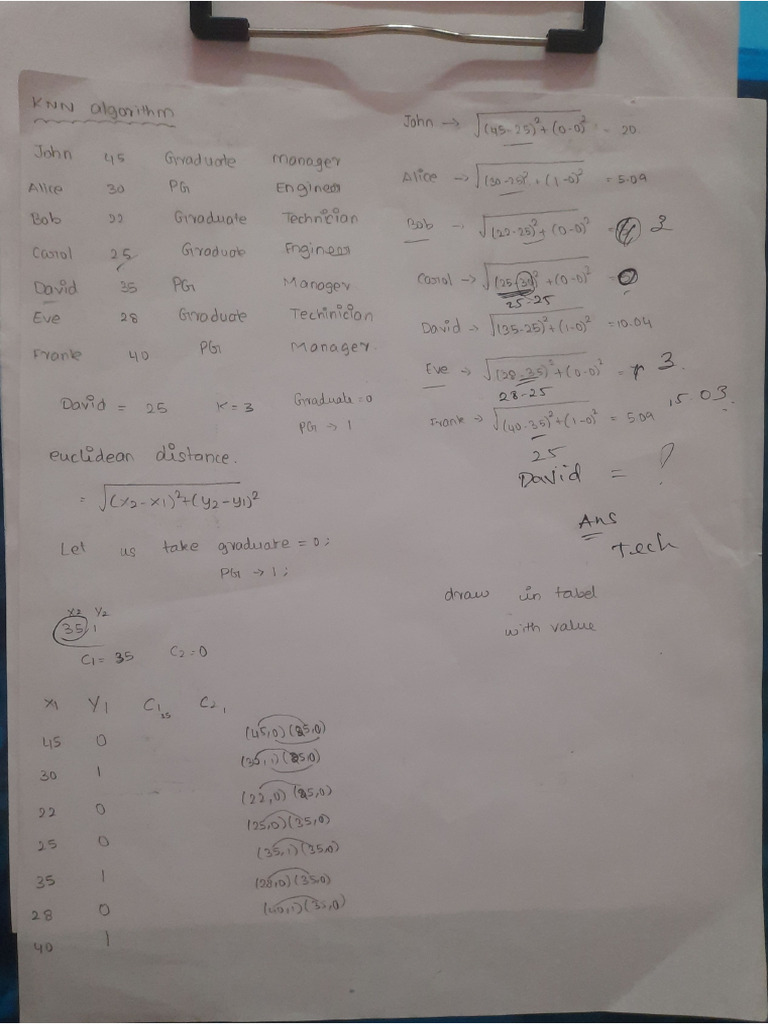 KNN algorithm
John 45 Graduate Manager
Alice 30 PG Engineer
Bob 22 Graduate Technician
Carrol 25 Graduate Engineer
David 35 PG Manager
Eve 28 Graduate Techinician
Frank 40 PG Manager.
David = 25 K = 3 Graduate = 0
PG → 1
euclidean distance.
= √(x2-x1)²+(y2-y1)²
Let us take graduate = 0;
PG → 1;
x2 y2
35, 1
C1 = 35 C2 = 0
x1 y1 C1 25 C2 1
45 0 (45,0) (25,0)
30 1 (35,1) (25,0)
22 0 (22,0) (25,0)
25 0 (25,0) (35,0)
35 1 (35,1) (35,0)
28 0 (28,0) (35,0)
40 1 (40,1) (35,0)
John → √(45-25)²+(0-0)² = 20.
Alice → √(30-25)²+(1-0)² = 5.09
Bob → √(22-25)²+(0-0)² = 3
Carrol → √(25-35)²+(0-0)² = 0
25-25
David → √(35-25)²+(1-0)² = 10.04
Eve → √(28-35)²+(0-0)² = 3.
28-25
Frank → √(40-35)²+(1-0)² = 5.09 15.03.
25
David = ?
Ans
Tech
draw in tabel
with value